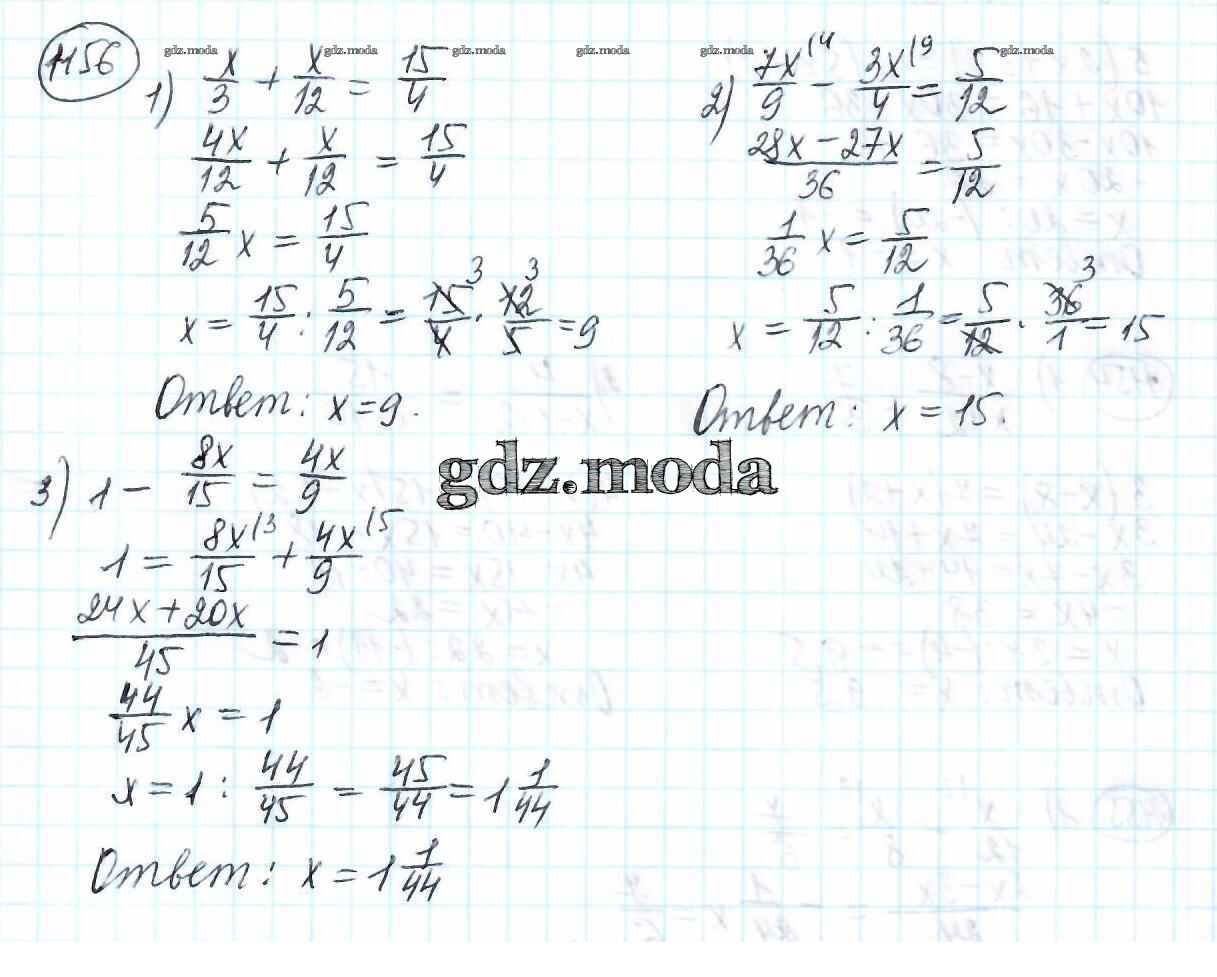 1156
gdz.moda gdz.moda gdz.moda gdz.moda gdz.moda gdz.moda
1) x/3 + x/12 = 15/4
4x/12 + x/12 = 15/4
5/12 x = 15/4
x = 15/4 : 5/12 = 15/4 · 12/5 = 9
3 3
Ответ: x = 9.
2) 7x/9 (4 - 3x/4 (9 = 5/12
28x - 27x/36 = 5/12
1/36 x = 5/12
x = 5/12 : 1/36 = 5/12 · 36/1 = 15
3
Ответ: x = 15.
gdz.moda
3) 1 - 8x/15 = 4x/9
1 = 8x/15 (3 + 4x/9 (5
24x + 20x/45 = 1
44/45 x = 1
x = 1 : 44/45 = 45/44 = 1 1/44
Ответ: x = 1 1/44